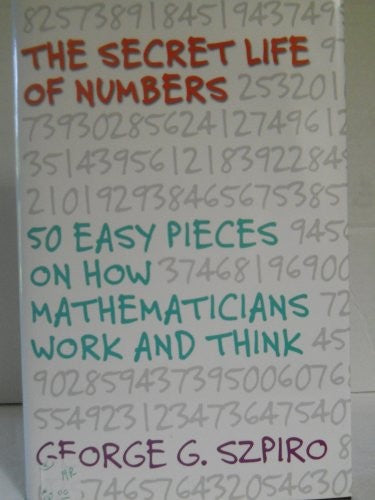 825738918451943749
THE SECRET LIFE 9
OF NUMBERS 253201
739302856241274961
351439561218392284
210192938465675385
50 EASY PIECES 945
ON HOW 37468196900
MATHEMATICIANS 72
WORK AND THINK 45
902859437395006076
554923123473647540
GEORGE G. SZPIRO 8
746576432054630